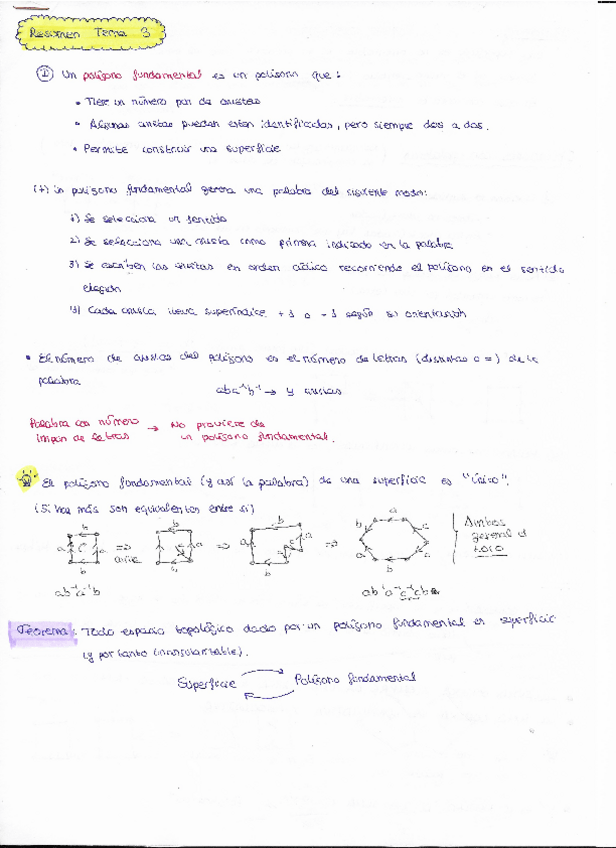 Resumen Tema 3
① Un polígono fundamental es un polígono que:
• Tiene un número par de aristas
• Algunas aristas pueden estar identificadas, pero siempre dos a dos.
• Permite construir una superficie
(*) Un polígono fundamental genera una palabra del siguiente modo:
1) Se selecciona un sentido
2) Se selecciona una arista como primera indicado en la palabra
3) Se escriben las aristas en orden cíclico recorriendo el polígono en el sentido
elegido
4) Cada arista lleva superíndice +1 o -1 según su orientación
• El número de aristas del polígono es el número de letras (distintas o =) de la
palabra
aba⁻¹b⁻¹ → 4 aristas
Palabra con número → No proviene de
impar de letras un polígono fundamental.
El polígono fundamental (y así la palabra) de una superficie es "único".
(Si hay más son equivalentes entre sí)
b b b a
a a a a a c
⇒ ⇒ ⇒
b b b
Ambos
generan el
toro
ab⁻¹a⁻¹b
Teorema: Todo espacio topológico dado por un polígono fundamental es superficie
(y por tanto triangularizable).
Superficie Polígono fundamental